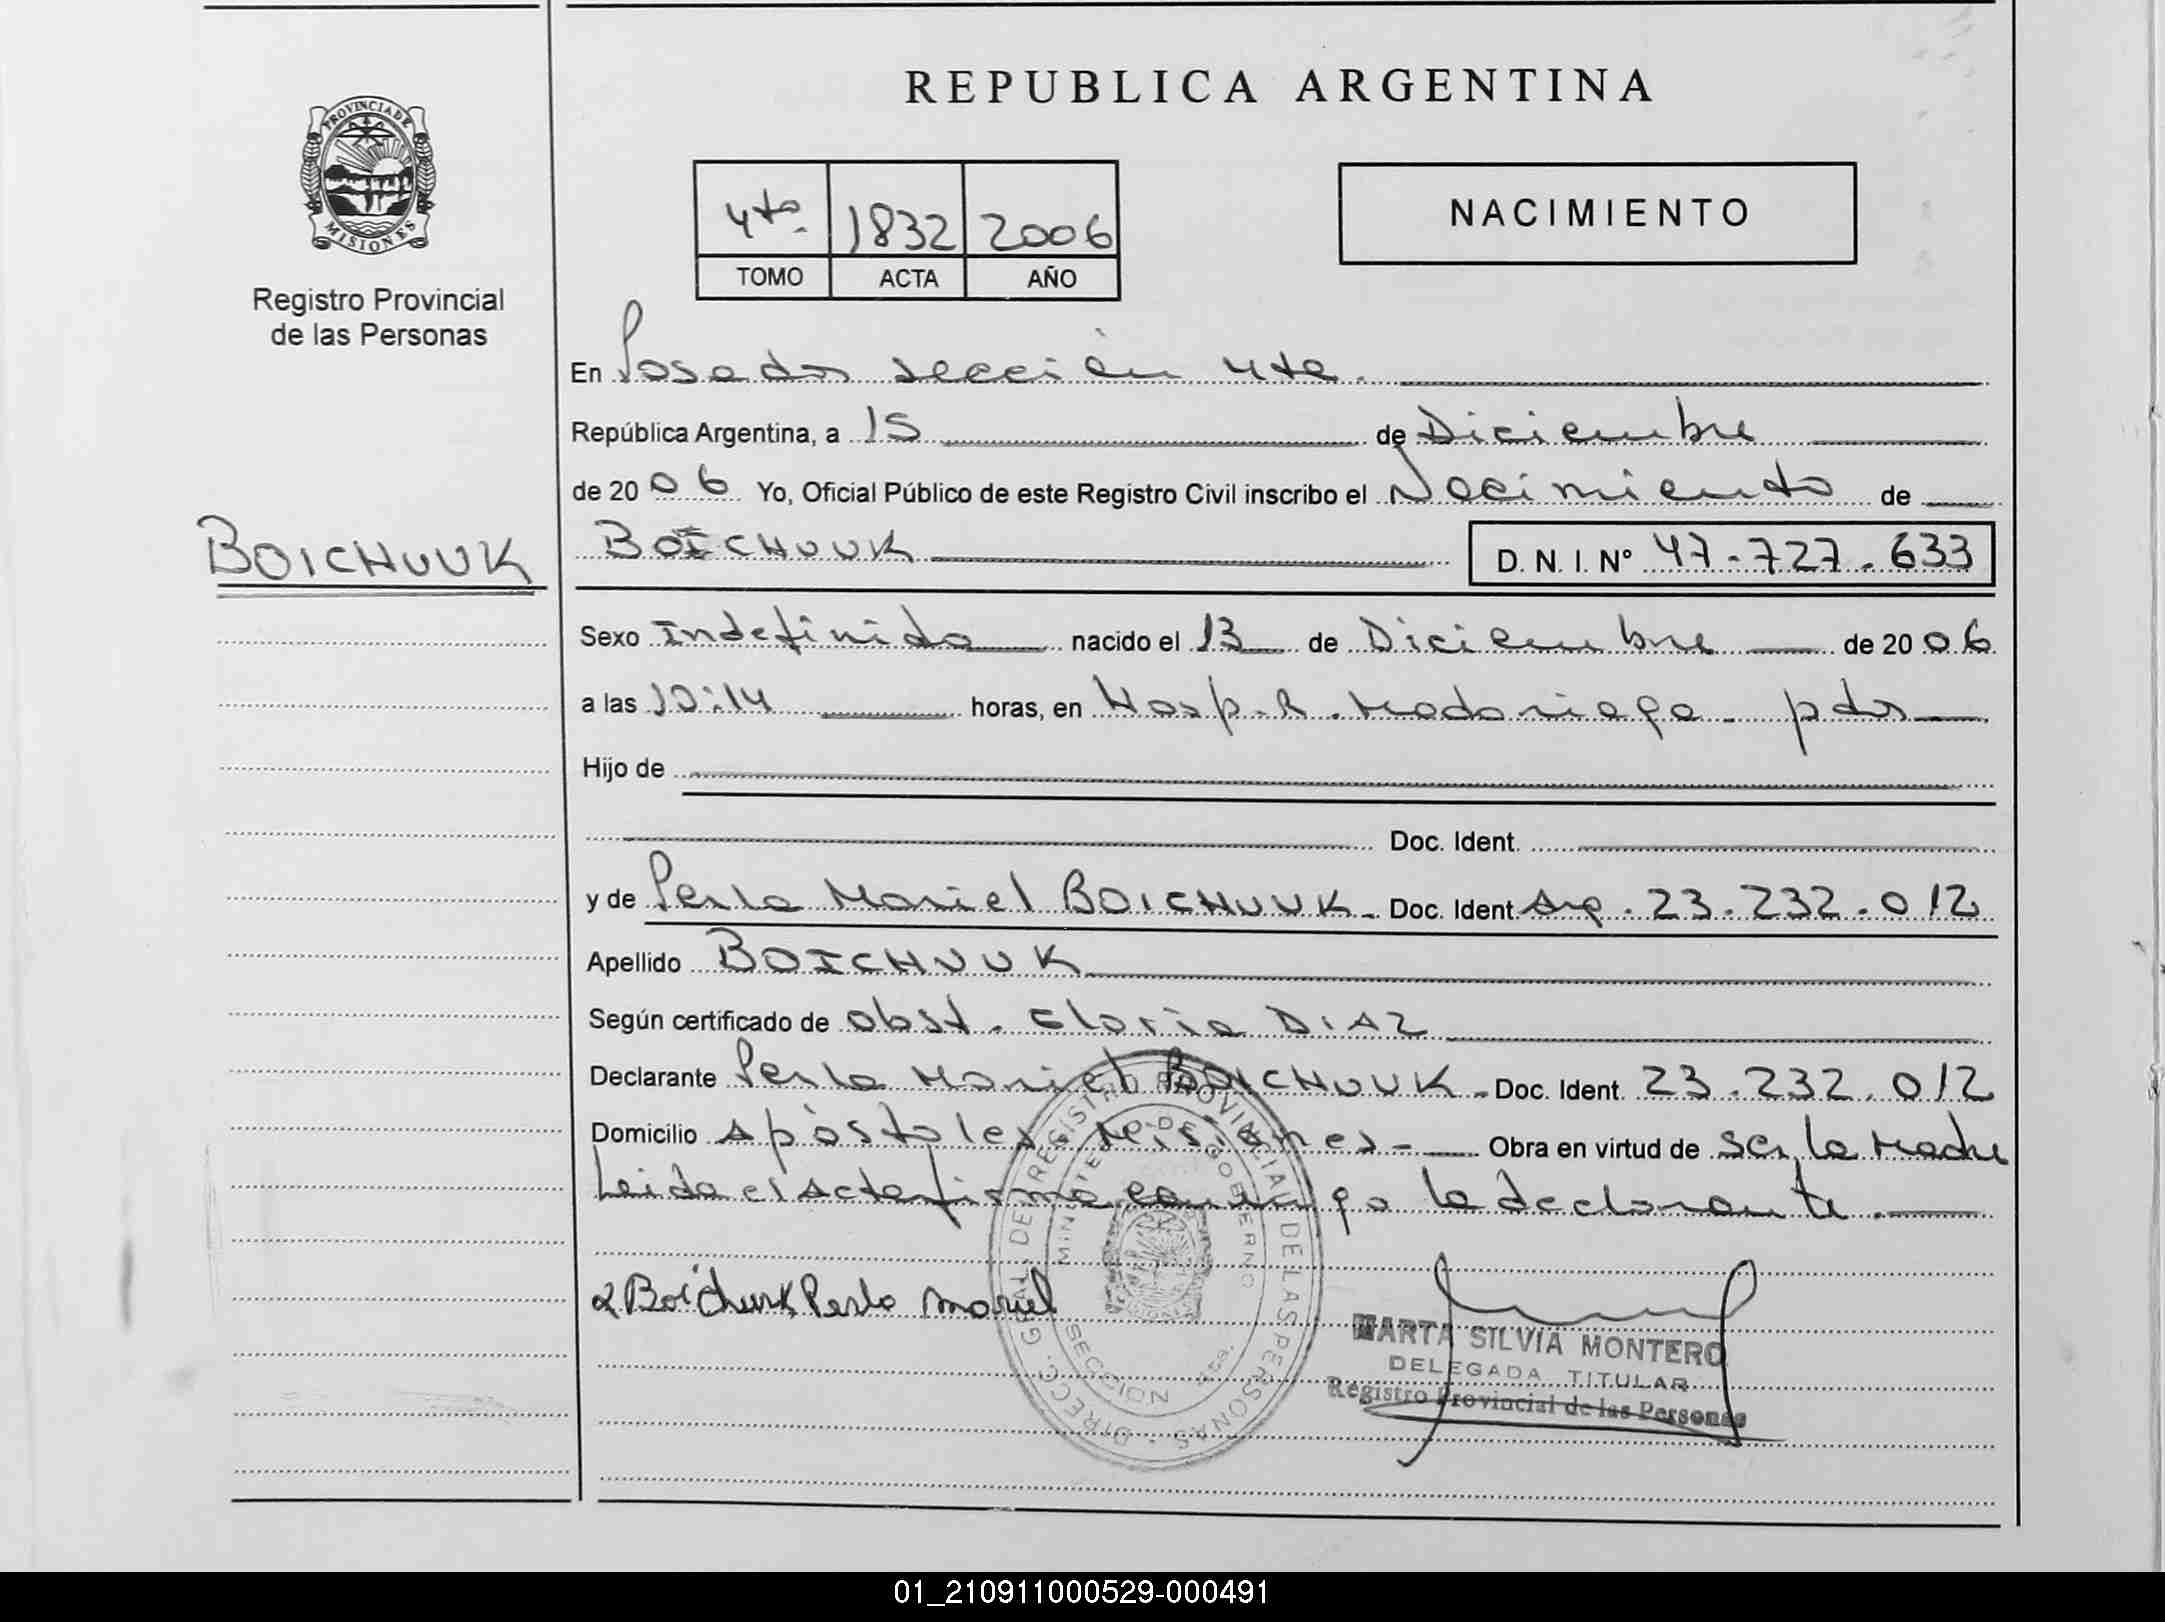 REPUBLICA ARGENTINA
PROVINCIA DE
MISIONES
Registro Provincial
de las Personas
4to. 1832 2006
TOMO ACTA AÑO
NACIMIENTO
En Posadas sección 4ta.
República Argentina, a 15 de Diciembre
de 2006 Yo, Oficial Público de este Registro Civil inscribo el Nacimiento de
BOICHUUK
BOICHUUK D.N.I. Nº 47-727.633
Sexo Indefinido nacido el 13 de Diciembre de 2006
a las horas, en Hosp. R. Madariaga - pdas
Hijo de
Doc. Ident.
y de Perla Mariel BOICHUUK. Doc. Ident Arg. 23.232.012
Apellido BOICHUUK
Según certificado de obst. Gloria DIAZ
Declarante Perla Mariel BOICHUUK - Doc. Ident. 23.232.012
Domicilio Apóstoles Misiones - Obra en virtud de ser la Madre
Leida el Acta firma conmigo la declarante.
Boichuuk Perla Mariel
DIRECC. GRAL. DE REGISTRO PROVINCIAL DE LAS PERSONAS
MINISTERIO DE GOBIERNO
SECCION 4ta.
MARTA SILVIA MONTERO
DELEGADA TITULAR
Registro Provincial de las Personas
01_210911000529-000491